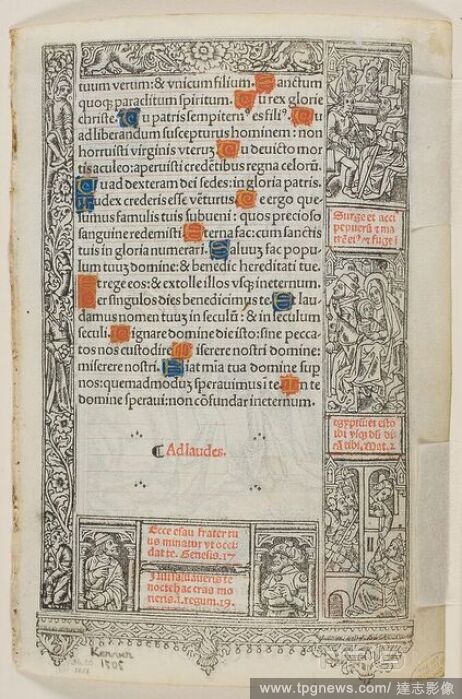 tuum verum: & vnicum filium. Sanctum
quoq; paraclitum spiritum. Tu rex glorie
christe. Tu patris sempitern⁹ es fili⁹. Tu
ad liberandum suscepturus hominem: non
horruisti virginis vteruȝ. Tu deuicto mor
tis aculeo: aperuisti credētibus regna celorū.
Tu ad dexteram dei sedes: in gloria patris.
Iudex crederis esse vēturus. Te ergo que-
sumus famulis tuis subueni: quos precioso
sanguine redemisti. Eterna fac: cum sanctis
tuis in gloria numerari. Saluuȝ fac popu
lum tuuȝ domine: & benedic hereditati tue.
Et rege eos: & extolle illos vsq; ineternum.
Per singulos dies benedicimus te. Et lau
damus nomen tuuȝ in seculū: & in seculum
seculi. Dignare domine die isto: sine pecca-
to nos custodire. Miserere nostri domine:
miserere nostri. Fiat mia tua domine sup
nos: quemadmoduȝ sperauimus i te. In te
domine speraui: non cōfundar ineternum.
¶Ad laudes.
Surge et acci
pe puerū ⁊ ma
trē ei⁹ ⁊ fuge i
egyptū et esto
ibi vsq; dū di
cā tibi. Mat. 2
Ecce esau frater tu
us minatur vt occi
dat te. Genesis. 27
Nisi saluaueris te
nocte hac cras mo
rieris. i. regum. 19.
Kerver
1505
www.tpgnews.com / 達志影像